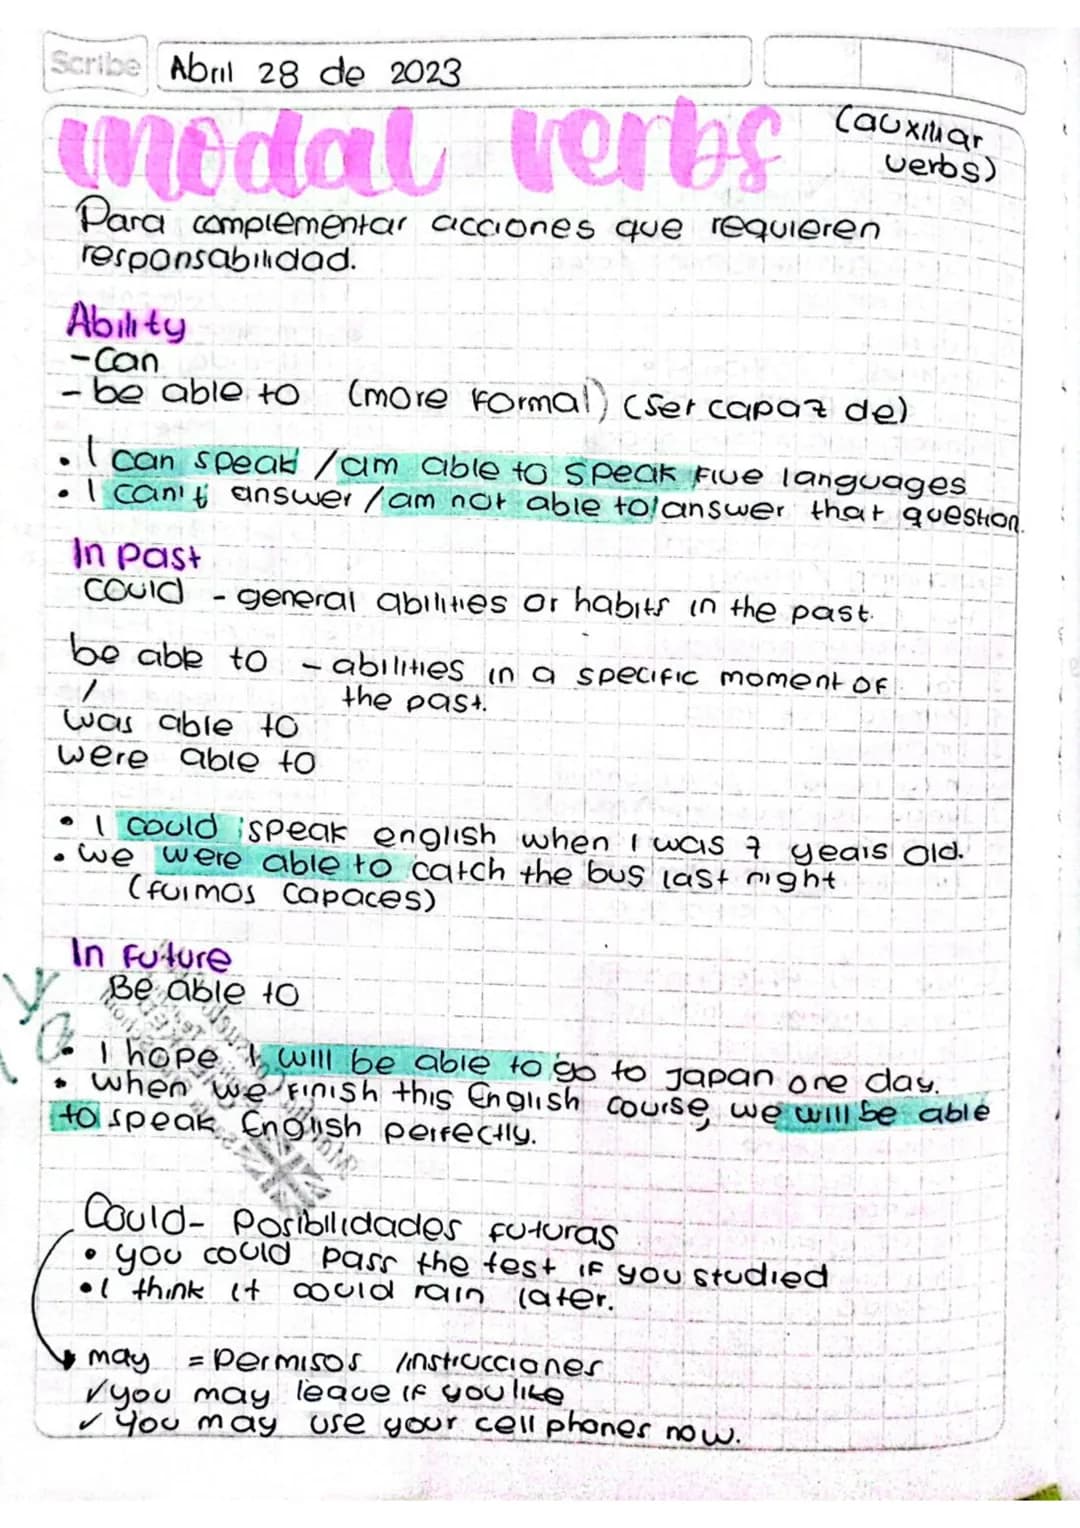 Scribe
Abril 28 de 2023
modal verbs
(auxiliar
verbs)
Para complementar acciones que requieren
responsabilidad.
Ability
-can
- be able to (more formal) (ser capaz de)
• I can speak / am able to speak five languages
• I can't answer / am not able to/answer that question.
In past
could - general abilities or habits in the past.
be able to - abilities in a specific moment of
/ the past.
was able to
were able to
• I could speak english when I was 7 years old.
• we were able to catch the bus last night
(fuimos capaces)
In future
Be able to
• I hope I will be able to go to Japan one day.
• when we finish this English course, we will be able
to speak English perfectly.
Could- Posibilidades futuras
• you could pass the test if you studied
• I think it could rain later.
may = permisos /instrucciones
✓you may leave if you like
✓ You may use your cell phones now.